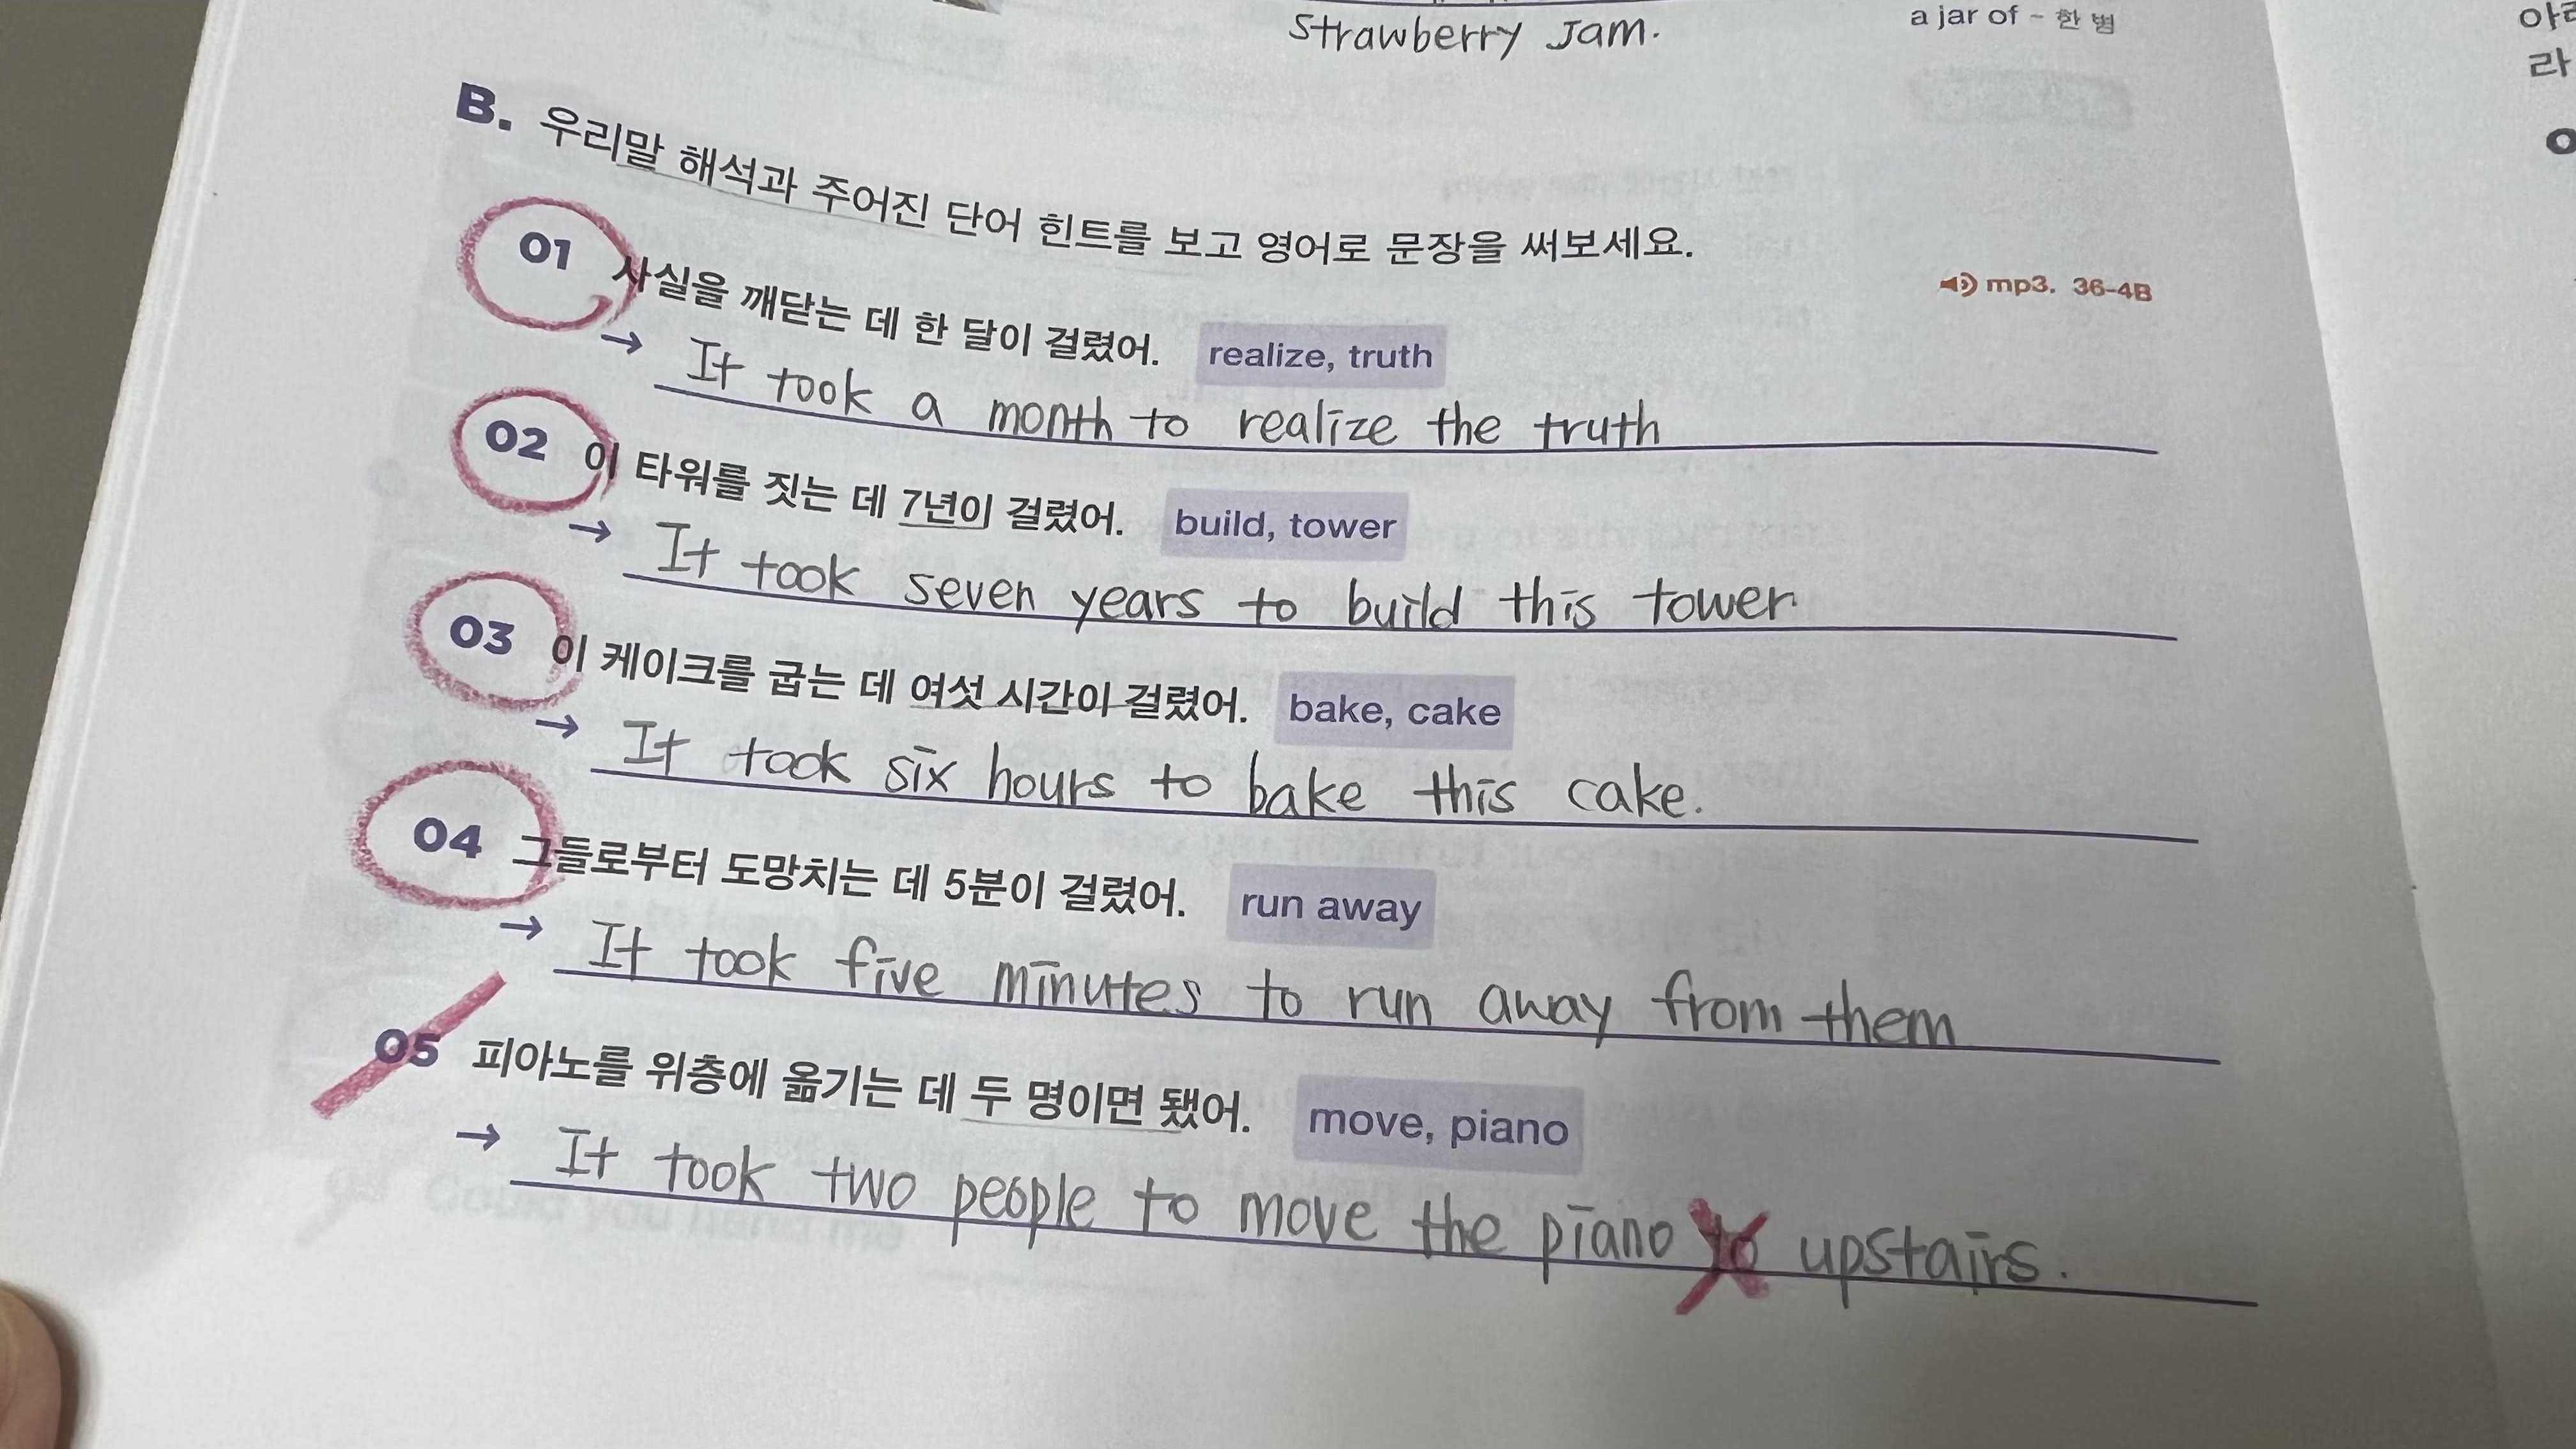 strawberry Jam.
a jar of - 한 병
B. 우리말 해석과 주어진 단어 힌트를 보고 영어로 문장을 써보세요.
mp3. 36-4B
01 사실을 깨닫는 데 한 달이 걸렸어. realize, truth
→ It took a month to realize the truth
02 이 타워를 짓는 데 7년이 걸렸어. build, tower
→ It took seven years to build this tower
03 이 케이크를 굽는 데 여섯 시간이 걸렸어. bake, cake
→ It took six hours to bake this cake.
04 그들로부터 도망치는 데 5분이 걸렸어. run away
→ It took five minutes to run away from them
05 피아노를 위층에 옮기는 데 두 명이면 됐어. move, piano
→ It took two people to move the piano to upstairs.
라